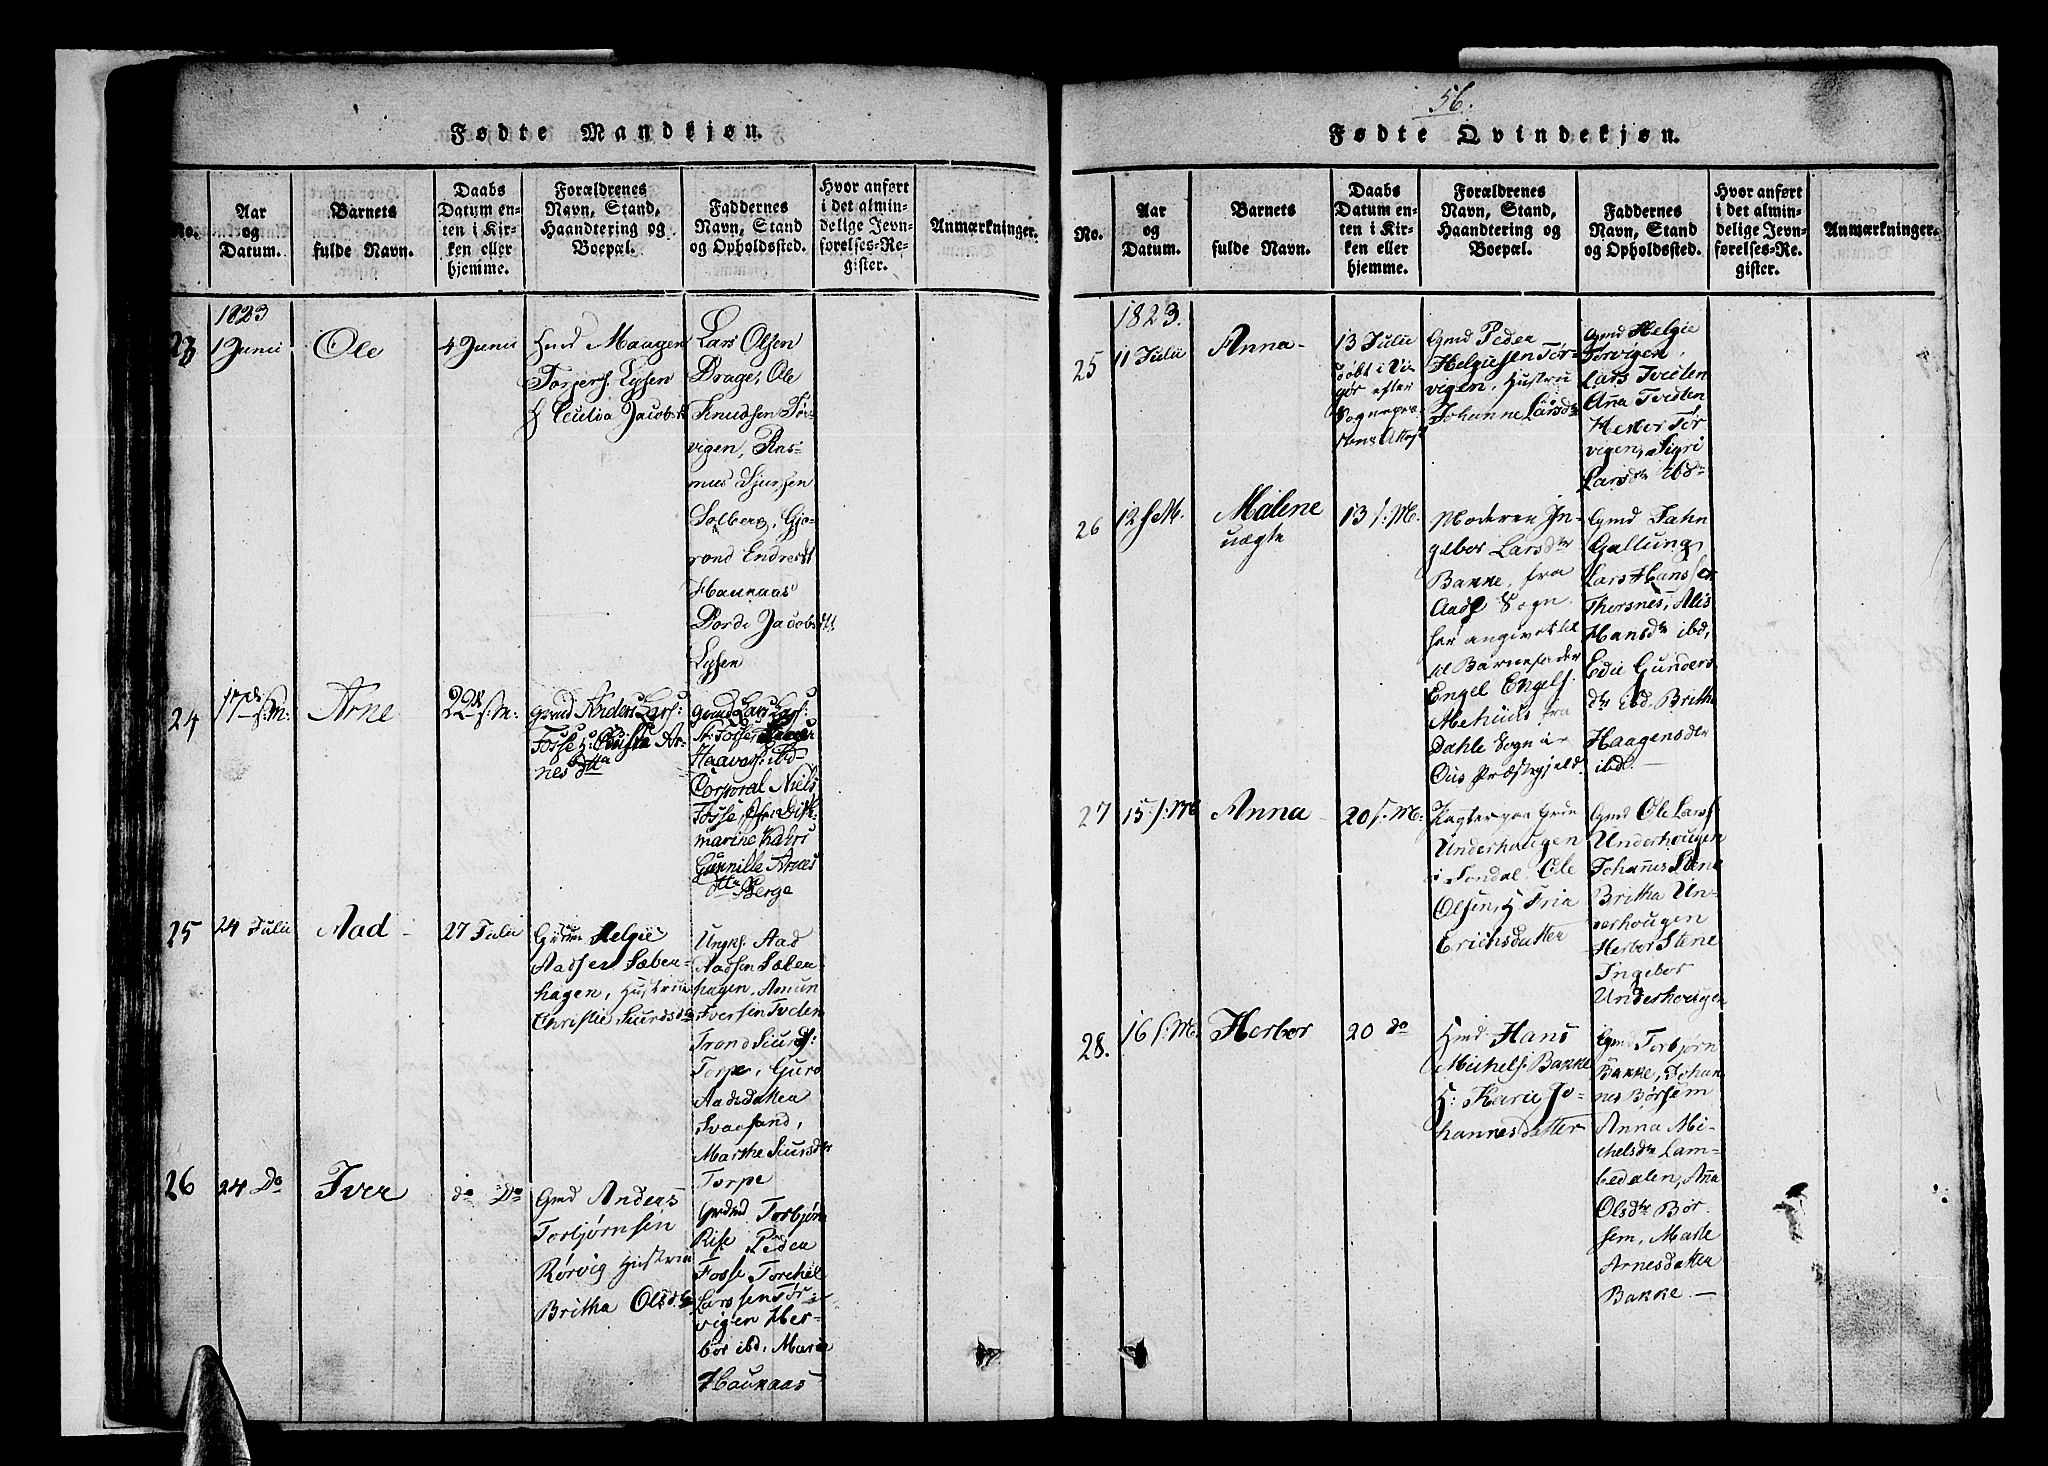 56.
Fødte Mandkjøn.
No.
Aar
og
Datum.
Barnets
fulde Navn.
Daabs
Datum en-
ten i Kir-
ken eller
hjemme.
Forældrenes
Navn, Stand,
Haandtering og
Boepæl.
Faddernes
Navn, Stand
og Opholdssted.
Hvor anført
i det almin-
delige Jevn-
førelses-Re-
gister.
Anmærkninger.
1823
23
1 Junii
Ole
4 Junii
Hmd Maagen
Torjers. Lysen
H Cecilia Jacobsd
Lars Olsen
Drage, Ole
Knudsen Tør-
vigen, Ras-
mus Sjursen
Solberg, Gjo-
rond Endresdt
Haukaas
Bordi Jacobsdtt
Lysen
24
17de s: m:
Arne
22de s: m:
Gmd Anders Lars:
Fosse H: Christa Ar-
nesdtta
Gmd Lars Lars:
Haavers: ibd
Corporal Niels
Fosse,
marine
Gunnille Arnes
dtta Berge
25
24 Julii
Aad
27 Julii
Grdm Helgie
Aadsen Sæben-
hagen, Hustrue
Christie Siursdtr
Ungk: Aad
Aadsen Sæben-
hagen, Amun
Iversen Tveten
Trond Siurs:
Torpe, Guro
Aadsdatter
Svaasand,
Marthe Siursdtr
Torpe
26
24 Do
Iver
do Do
Gmd Anders
Torbjørnsen
Rørvig Hustrue
Britha Olsdtr
Grdmd Torbjørn
Rise Peder
Fosse Torchel
Larssen Tør-
vigen Her-
bor ibd. Maria
Haukaas
Fødte Qvindekjøn.
No.
Aar
og
Datum.
Barnets
fulde Navn.
Daabs
Datum en-
ten i Kir-
ken eller
hjemme.
Forældrenes
Navn, Stand,
Haandtering og
Boepæl.
Faddernes
Navn, Stand
og Opholdssted.
Hvor anført
i det almin-
delige Jevn-
førelses-Re-
gister.
Anmærkninger.
1823.
25
11 Julii
Anna
13 Julii
døbt i Vi-
gør efter
Sognepre-
stens Attest
Gmd Peder
Helgiesen Tør-
vigen, Hustru
Johanne Larsdtr
Gmd Helgie
Tørvigen,
Lars Tveten
Anna Tveten
Herbor Tør
vigen, Sigri
Larsdtr ibd
26
12 s: M.
Malene
uægte
13 s: M.
Moderen In-
gebor Larsdtr
Bakke, fra
Aads Sogn
har angivet til
til Barnefader
Engel Engels.
Mehuus fra
Dahle Sogn i
Ous Præstegjeld
Gmd Jahn
Gallung,
Lars Hanssen
Thorsnes, Alis
Hansdtr ibd,
Edie Gunders
dtr ibd. Britha
Haagensdtr
ibd.
27
15 s: M
Anna
20 s: M:
Underhougen
i Jondal Ole
Olsen, H Fria
Erichsdatter
Gmd Ole Lars:
Underhougen
Johannes Stene
Britha Un-
derhougen
Herbor Stene
Ingebor
Underhougen
28.
16 s: M.
Herbor
20 do
Hmd Hans
Michels: Bakke
H: Karie Jo-
hannesdatter
Gmd Torbjørn
Bakke, Johan
nes Børsem
Anna Mi-
chelsdtr Lam-
bedalen, Ana
Olsdtr Bør-
sem, Marte
Arnesdatter
Bakke.